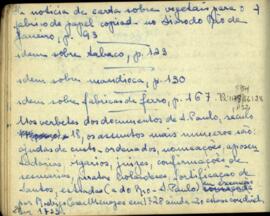 a noticia de certos sobre vegetais para o
fabrico de papel copiado no Diario do Rio de
Janeiro, p. 93
idem sobre tabaco, p. 123
idem sobre mandioca, p. 130
idem sobre fabricas de ferro, p. 167
Nos verbetes dos documentos de S. Paulo, seculo
18, os assuntos mais numerosos são:
ajudas de custo, ordenados, nomeações, aposen
tadorias, vigarios, juizes, confirmações de
sesmarias, fortificação de
Santos, estradas (a do Rio - S. Paulo
por Rodrigo Cesar Menezes em 1728